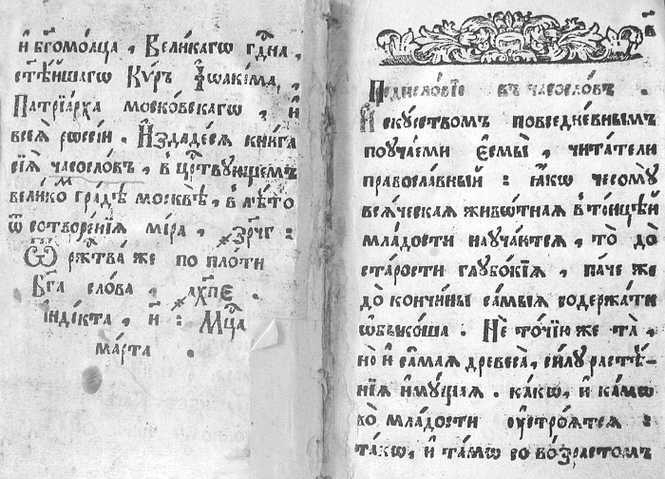 и҆ бг҃омо́лца , Вели́кагѡ гдⷭ҇на ,
ст҃ѣ́йшагѡ Кѷ́ръ І҆ѡакі́ма ,
Патрїа́рха моско́вскагѡ , и҆
всеѧ̀ рѡссі́и . И҆здаде́сѧ кни́га
сїѧ̀ часосло́въ , в ца́рⷭ҇твующемъ
вели́комъ гра́дѣ москвѣ̀ , в лѣ́то
ѿ сотворе́нїѧ мі́ра , ҂зр҃чг :
Ѿ ржⷭ҇тва́ же по пло́ти
Бг҃а сло́ва , ҂ахпе .
І҆нді́кта , и҃ : Мцⷭ҇а
ма́рта .
Предисло́вїе въ часосло́въ .
Искꙋ́ствомъ повседне́внымъ
поꙋча́еми є҆смы̀ , чита́тели
правосла́вный : ꙗ҆́кѡ чесомꙋ̀
всѧ́ческаѧ живѡ́тнаѧ в то́нцѣй
мла́дости наꙋча́ютсѧ , то̀ до
ста́рости глꙋбо́кїѧ , па́че же
до кончи́ны са́мыѧ содержа́ти
ѡ҆бы́коша . Не то́чїю же та̀ ,
но и҆ са́маѧ древеса̀ , си́лꙋ расте́-
нїѧ и҆мꙋ́щаѧ . ка́кѡ , и҆ ка́мѡ
во мла́дости ᲂу҆строѧ́тсѧ :
та́кѡ , и҆ та́мѡ со во́зрастомъ